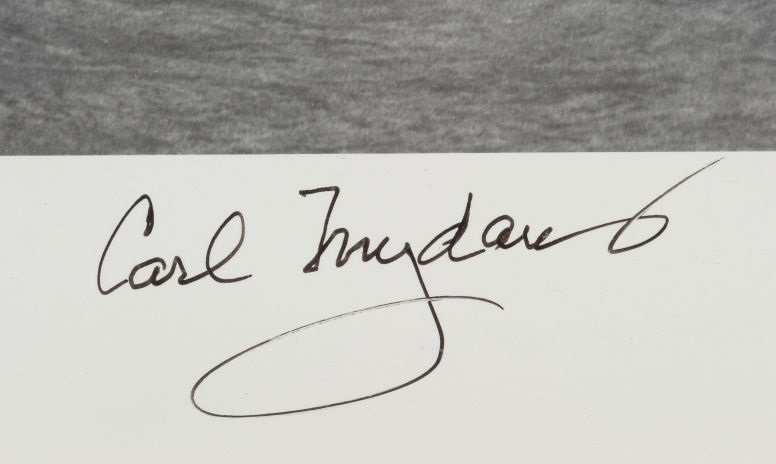 Carl Mydans